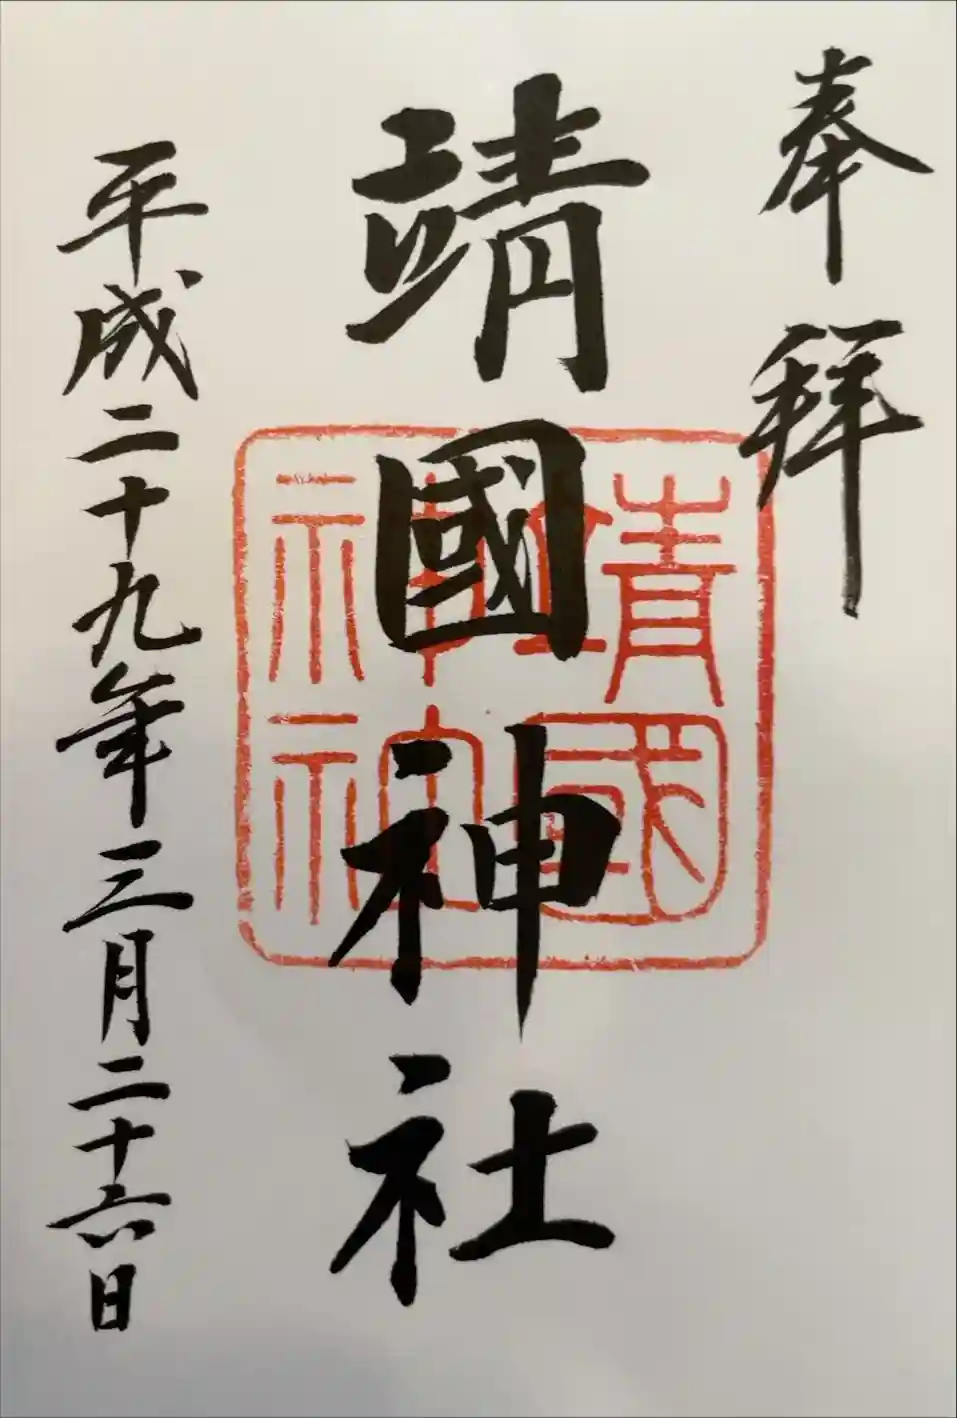 奉拝
靖國神社
靖國神社
平成二十九年三月二十六日